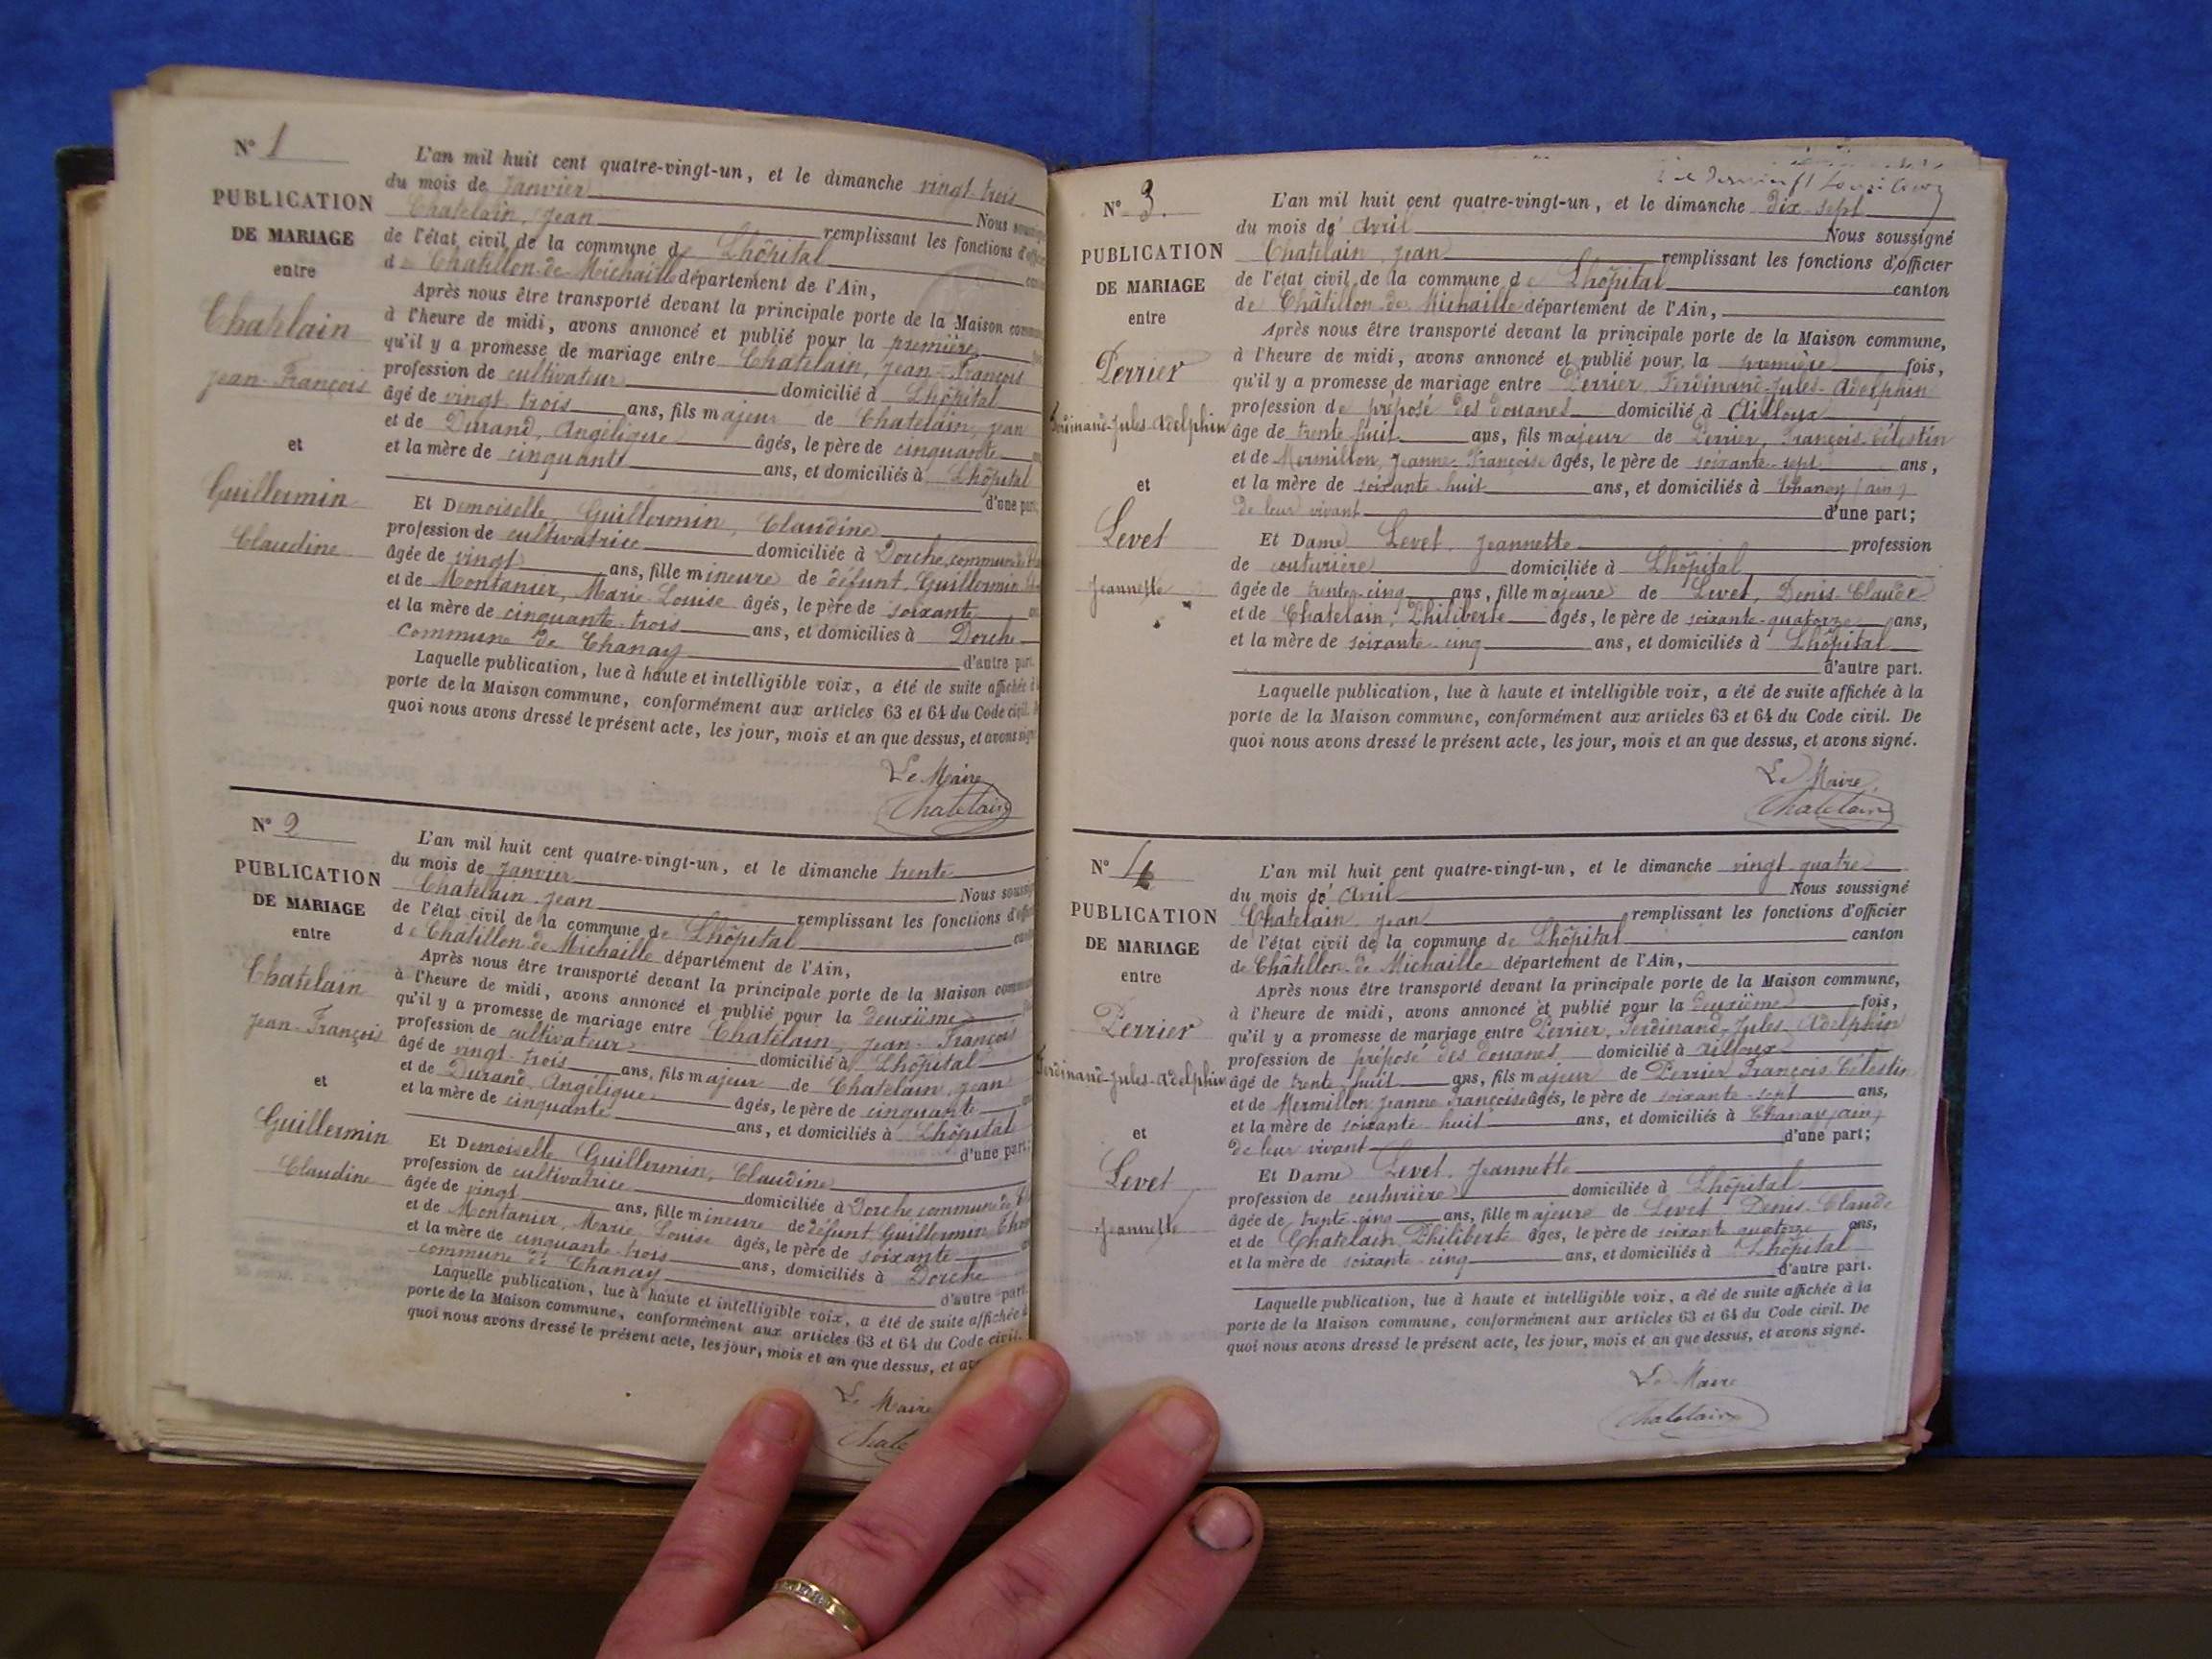 N° 1
PUBLICATION
DE MARIAGE
entre
Chatelain
Jean-François
et
Guillermin
Claudine
L'an mil huit cent quatre-vingt-un, et le dimanche vingt-trois
du mois de Janvier Nous
Chatelain, Jean remplissant les fonctions
de l'état civil de la commune de Lhôpital
de Chatillon-de-Michaille département de l'Ain,
Après nous être transporté devant la principale porte de la Maison
à l'heure de midi, avons annoncé et publié pour la première
qu'il y a promesse de mariage entre Chatelain, Jean-François
profession de cultivateur domicilié à Lhôpital
âgé de vingt-trois ans, fils majeur de Chatelain, Jean
et de Durand, Angélique âgés, le père de cinquante
et la mère de cinquante ans, et domiciliés à Lhôpital
d'une part;
Et Demoiselle Guillermin, Claudine
profession de cultivatrice domiciliée à Dorche, commune de
âgée de vingt ans, fille mineure de défunt Guillermin
et de Montanier, Marie-Louise âgés, le père de soixante
et la mère de cinquante-trois ans, et domiciliés à Dorche
commune de Chanay d'autre part.
Laquelle publication, lue à haute et intelligible voix, a été de suite affichée à
porte de la Maison commune, conformément aux articles 63 et 64 du Code civil.
quoi nous avons dressé le présent acte, les jour, mois et an que dessus, et avons
Le Maire
Chatelain
N° 2
PUBLICATION
DE MARIAGE
entre
Chatelain
Jean-François
et
Guillermin
Claudine
L'an mil huit cent quatre-vingt-un, et le dimanche trente
du mois de Janvier Nous
Chatelain, Jean remplissant les fonctions
de l'état civil de la commune de Lhôpital
de Chatillon de Michaille département de l'Ain,
Après nous être transporté devant la principale porte de la Maison
à l'heure de midi, avons annoncé et publié pour la deuxième
qu'il y a promesse de mariage entre Chatelain, Jean-François
profession de cultivateur domicilié à Lhôpital
âgé de vingt-trois ans, fils majeur de Chatelain, Jean
et de Durand, Angélique âgés, le père de cinquante
et la mère de cinquante ans, et domiciliés à Lhôpital
d'une part;
Et Demoiselle Guillermin, Claudine
profession de cultivatrice domiciliée à Dorche commune de
âgée de vingt ans, fille mineure de défunt Guillermin
et de Montanier, Marie Louise âgés, le père de soixante
et la mère de cinquante-trois ans, domiciliés à Dorche
commune de Chanay d'autre part.
Laquelle publication, lue à haute et intelligible voix, a été de suite affichée
porte de la Maison commune, conformément aux articles 63 et 64 du Code civil.
quoi nous avons dressé le présent acte, les jour, mois et an que dessus, et
Le Maire
N° 3.
PUBLICATION
DE MARIAGE
entre
Perrier
Ferdinand-Jules-Adelphin
et
Levet
Jeannette
L'an mil huit cent quatre-vingt-un, et le dimanche dix-sept
du mois de Avril Nous soussigné
Chatelain, Jean remplissant les fonctions d'officier
de l'état civil de la commune de Lhôpital canton
de Châtillon de Michaille département de l'Ain,
Après nous être transporté devant la principale porte de la Maison commune,
à l'heure de midi, avons annoncé et publié pour la première fois,
qu'il y a promesse de mariage entre Perrier, Ferdinand-Jules-Adelphin
profession de préposé des douanes domicilié à
âgé de trente huit ans, fils majeur de Perrier, François-Célestin
et de Mermillon, Jeanne-Françoise âgés, le père de soixante-sept ans,
et la mère de soixante-huit ans, et domiciliés à Chanay (ain)
de leur vivant d'une part;
Et Dame Levet, Jeannette profession
de couturière domiciliée à Lhôpital
âgée de trente-cinq ans, fille majeure de Levet, Denis-Claude
et de Chatelain, Philiberte âgés, le père de soixante-quatorze ans,
et la mère de soixante-cinq ans, et domiciliés à Lhôpital
d'autre part.
Laquelle publication, lue à haute et intelligible voix, a été de suite affichée à la
porte de la Maison commune, conformément aux articles 63 et 64 du Code civil. De
quoi nous avons dressé le présent acte, les jour, mois et an que dessus, et avons signé.
Le Maire,
Chatelain
N° 4
PUBLICATION
DE MARIAGE
entre
Perrier
Ferdinand-Jules-Adelphin
et
Levet
Jeannette
L'an mil huit cent quatre-vingt-un, et le dimanche vingt-quatre
du mois de Avril Nous soussigné
Chatelain, Jean remplissant les fonctions d'officier
de l'état civil de la commune de Lhôpital canton
de Châtillon-de Michaille département de l'Ain,
Après nous être transporté devant la principale porte de la Maison commune,
à l'heure de midi, avons annoncé et publié pour la deuxième fois,
qu'il y a promesse de mariage entre Perrier, Ferdinand-Jules Adelphin
profession de préposé des douanes domicilié à
âgé de trente-huit ans, fils majeur de Perrier François Célestin
et de Mermillon Jeanne Françoise âgés, le père de soixante-sept ans,
et la mère de soixante-huit ans, et domiciliés à Chanay (ain)
de leur vivant d'une part;
Et Dame Levet, Jeannette
profession de couturière domiciliée à Lhôpital
âgée de trente-cinq ans, fille majeure de Levet Denis-Claude
et de Chatelain, Philiberte âgés, le père de soixante quatorze ans,
et la mère de soixante-cinq ans, et domiciliés à Lhôpital
d'autre part.
Laquelle publication, lue à haute et intelligible voix, a été de suite affichée à la
porte de la Maison commune, conformément aux articles 63 et 64 du Code civil. De
quoi nous avons dressé le présent acte, les jour, mois et an que dessus, et avons signé.
Le Maire
Chatelain